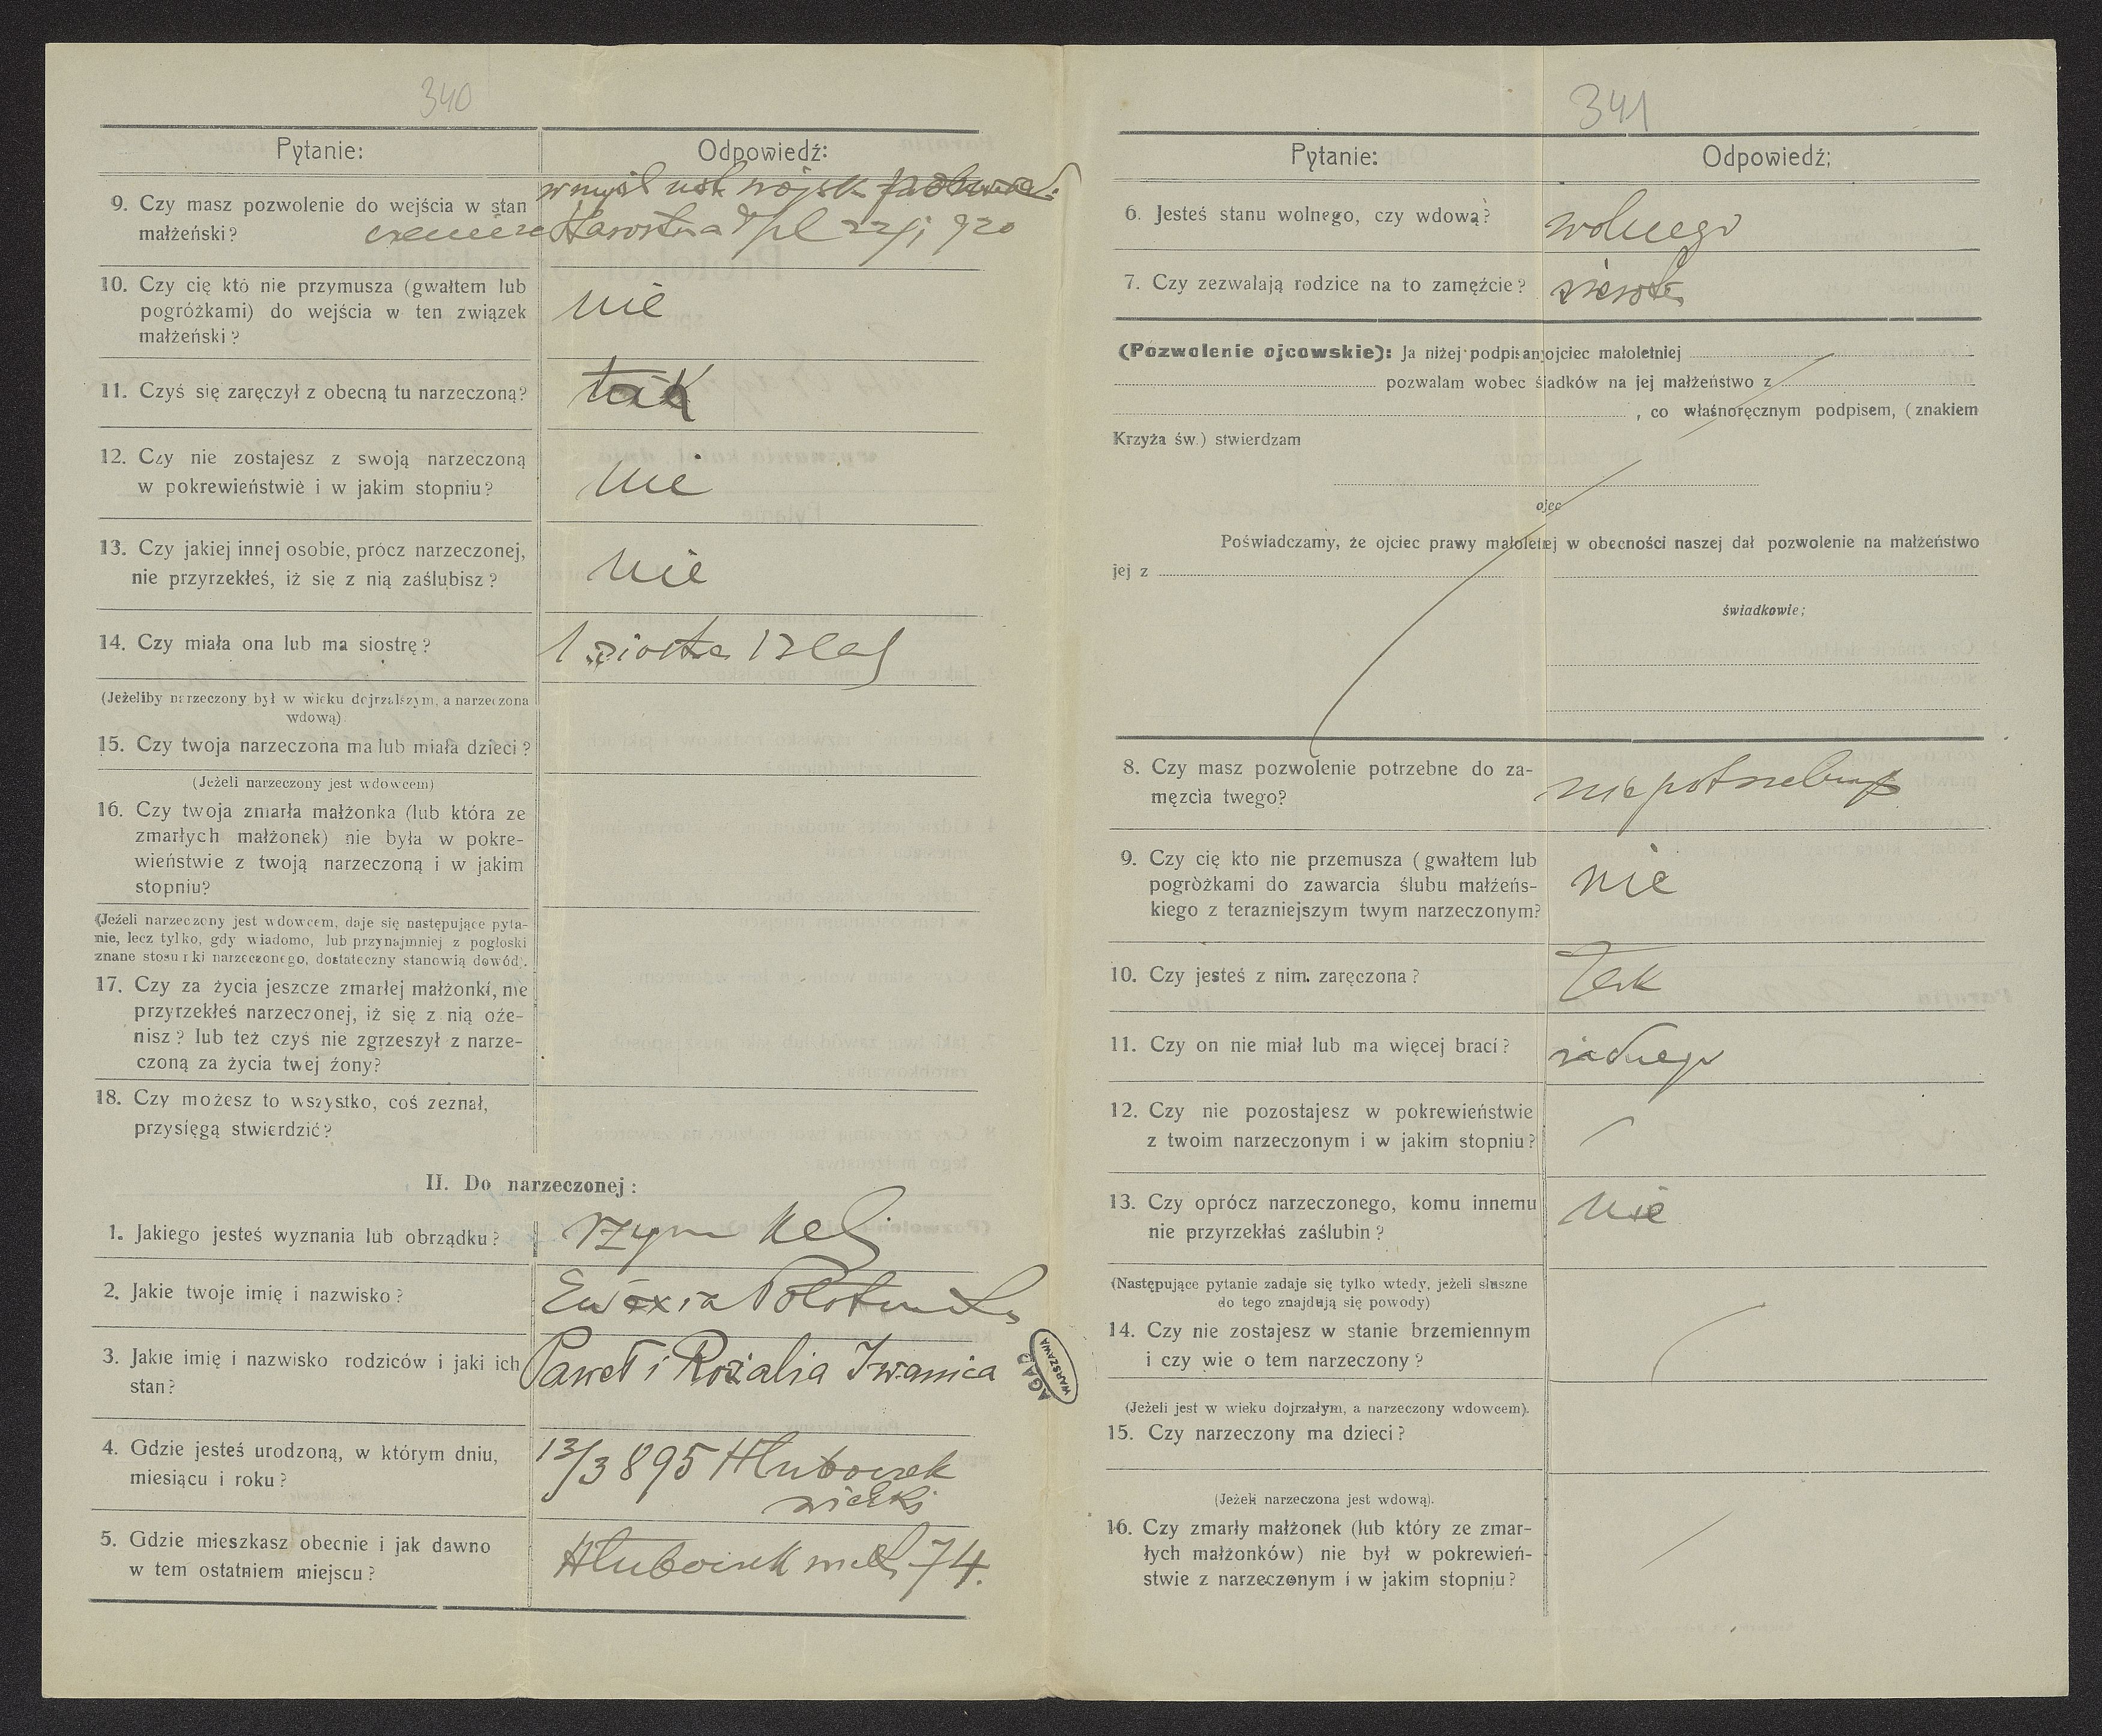 340
Pytanie:
Odpowiedź:
9. Czy masz pozwolenie do wejścia w stan
małżeński?
wojsk
22/1 920
10. Czy cię kto nie przymusza (gwałtem lub
pogróżkami) do wejścia w ten związek
małżeński?
nie
11. Czyś się zaręczył z obecną tu narzeczoną?
tak
12. Czy nie zostajesz z swoją narzeczoną
w pokrewieństwie i w jakim stopniu?
nie
13. Czy jakiej innej osobie, prócz narzeczonej,
nie przyrzekłeś, iż się z nią zaślubisz?
nie
14. Czy miała ona lub ma siostrę?
1 siostra 12 lat
(Jeżeliby narzeczony był w wieku dojrzalszym, a narzeczona
wdową)
15. Czy twoja narzeczona ma lub miała dzieci?
(Jeżeli narzeczony jest wdowcem)
16. Czy twoja zmarła małżonka (lub która ze
zmarłych małżonek) nie była w pokre-
wieństwie z twoją narzeczoną i w jakim
stopniu?
(Jeżeli narzeczony jest wdowcem, daje się następujące pyta-
nie, lecz tylko, gdy wiadomo, lub przynajmniej z pogłoski
znane stosunki narzeczonego, dostateczny stanowią dowód).
17. Czy za życia jeszcze zmarłej małżonki, nie
przyrzekłeś narzeczonej, iż się z nią oże-
nisz? lub też czyś nie zgrzeszył z narze-
czoną za życia twej żony?
18. Czy możesz to wszystko, coś zeznał,
przysięgą stwierdzić?
II. Do narzeczonej:
1. Jakiego jesteś wyznania lub obrządku?
rzym kat
2. Jakie twoje imię i nazwisko?
3. Jakie imię i nazwisko rodziców i jaki ich
stan?
Paweł i Rozalia Iwanica
4. Gdzie jesteś urodzoną, w którym dniu,
miesiącu i roku?
13/3 895 Hłuboczek
wielki
5. Gdzie mieszkasz obecnie i jak dawno
w tem ostatniem miejscu?
Hłuboczek wielk 74.
AGAD
WARSZAWA
341
Pytanie:
Odpowiedź;
6. Jesteś stanu wolnego, czy wdową?
wolnego
7. Czy zezwalają rodzice na to zamęźcie?
sierota
(Pozwolenie ojcowskie): Ja niżej podpisany ojciec małoletniej
pozwalam wobec śladków na jej małżeństwo z
, co własnoręcznym podpisem, (znakiem
Krzyża św.) stwierdzam
ojec
Poświadczamy, że ojciec prawy małoletniej w obecności naszej dał pozwolenie na małżeństwo
jej z
świadkowie;
8. Czy masz pozwolenie potrzebne do za-
męzcia twego?
nie potrzebuje
9. Czy cię kto nie przemusza (gwałtem lub
pogròżkami do zawarcia ślubu małźeńs-
kiego z terazniejszym twym narzeczonym?
nie
10. Czy jesteś z nim. zaręczona?
Tak
11. Czy on nie miał lub ma więcej braci?
żadnego
12. Czy nie pozostajesz w pokrewieństwie
z twoim narzeczonym i w jakim stopniu?
13. Czy oprócz narzeczonego, komu innemu
nie przyrzekłaś zaślubin?
nie
(Następujące pytanie zadaje się tylko wtedy, jeżeli słuszne
do tego znajdują się powody)
14. Czy nie zostajesz w stanie brzemiennym
i czy wie o tem narzeczony?
(Jeżeli jest w wieku dojrzałym, a narzeczony wdowcem).
15. Czy narzeczony ma dzieci?
(Jeżeli narzeczona jest wdową).
16. Czy zmarły małżonek (lub który ze zmar-
łych małżonków) nie był w pokrewień-
stwie z narzeczonym i w jakim stopniu?